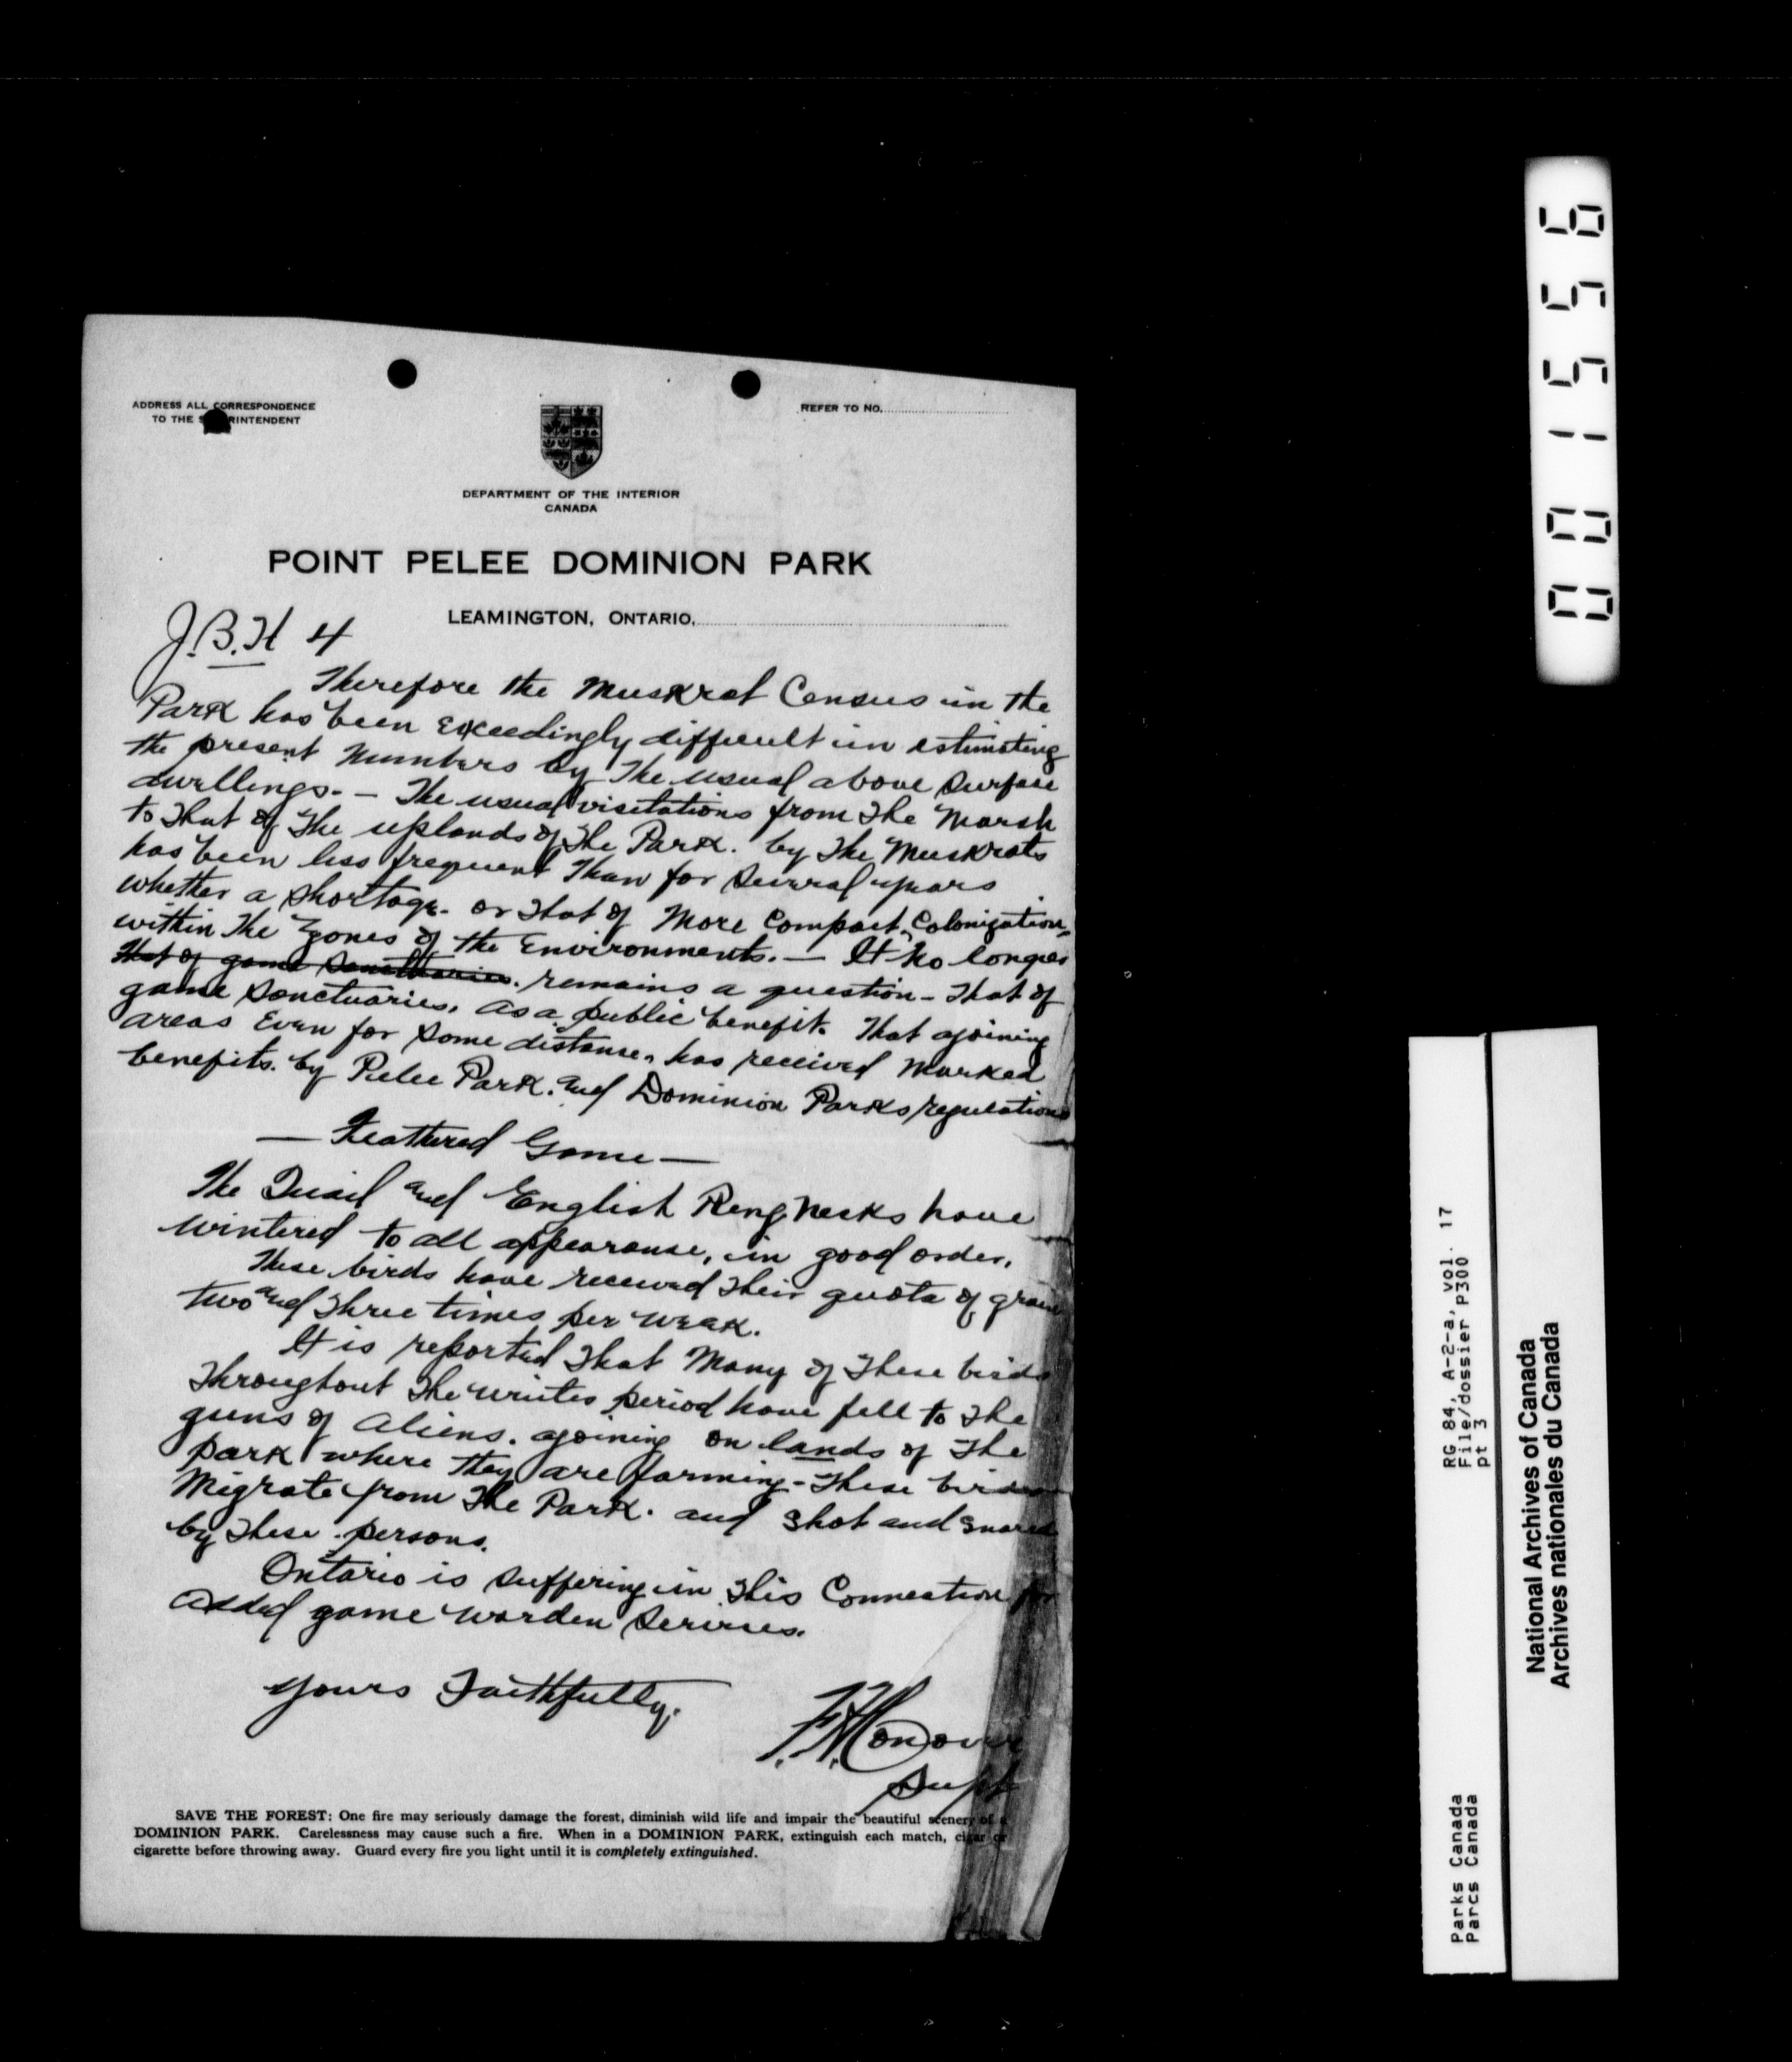 ADDRESS ALL CORRESPONDENCE
TO THE RINTENDENT
REFER TO NO.
DEPARTMENT OF THE INTERIOR
CANADA
POINT PELEE DOMINION PARK
LEAMINGTON, ONTARIO,
J.B.H 4
Therefore the Muskrat Census in the
Park has been exceedingly difficult in estimating
the present Numbers by the usual above surface
dwellings. - The usual visitations from the Marsh
to that of the uplands of the Park. by the Muskrats
has been less frequent than for several years
whether a shortage. or that of More Compact Colonization
within the Zones of the Environments. - It no longer
that of game sanctuaries. remains a question - that of
game sanctuaries. as a public benefit. That ajoining
areas Even for some distance, has received Marked
benefits. by Pelee Park. and Dominion Parks regulations
— Feathered Game —
The Quail and English Ring Necks have
wintered to all appearance, in good order.
These birds have received their quota of grain
two and three times per week.
It is reported that Many of these birds
throughout the winter period have fell to the
guns of aliens. ajoining on lands of the
park where they are farming - These birds
Migrate from the Park. and shot and snared
by these persons.
Ontario is suffering in this Connection for
added game warden services.
Yours Faithfully.
F.H. Conover
Supt
SAVE THE FOREST: One fire may seriously damage the forest, diminish wild life and impair the beautiful scenery of a
DOMINION PARK. Carelessness may cause such a fire. When in a DOMINION PARK, extinguish each match, cigar or
cigarette before throwing away. Guard every fire you light until it is completely extinguished.
001556
RG 84, A-2-a, vol. 17
File/dossier P300
pt 3
Parks Canada
Parcs Canada
National Archives of Canada
Archives nationales du Canada